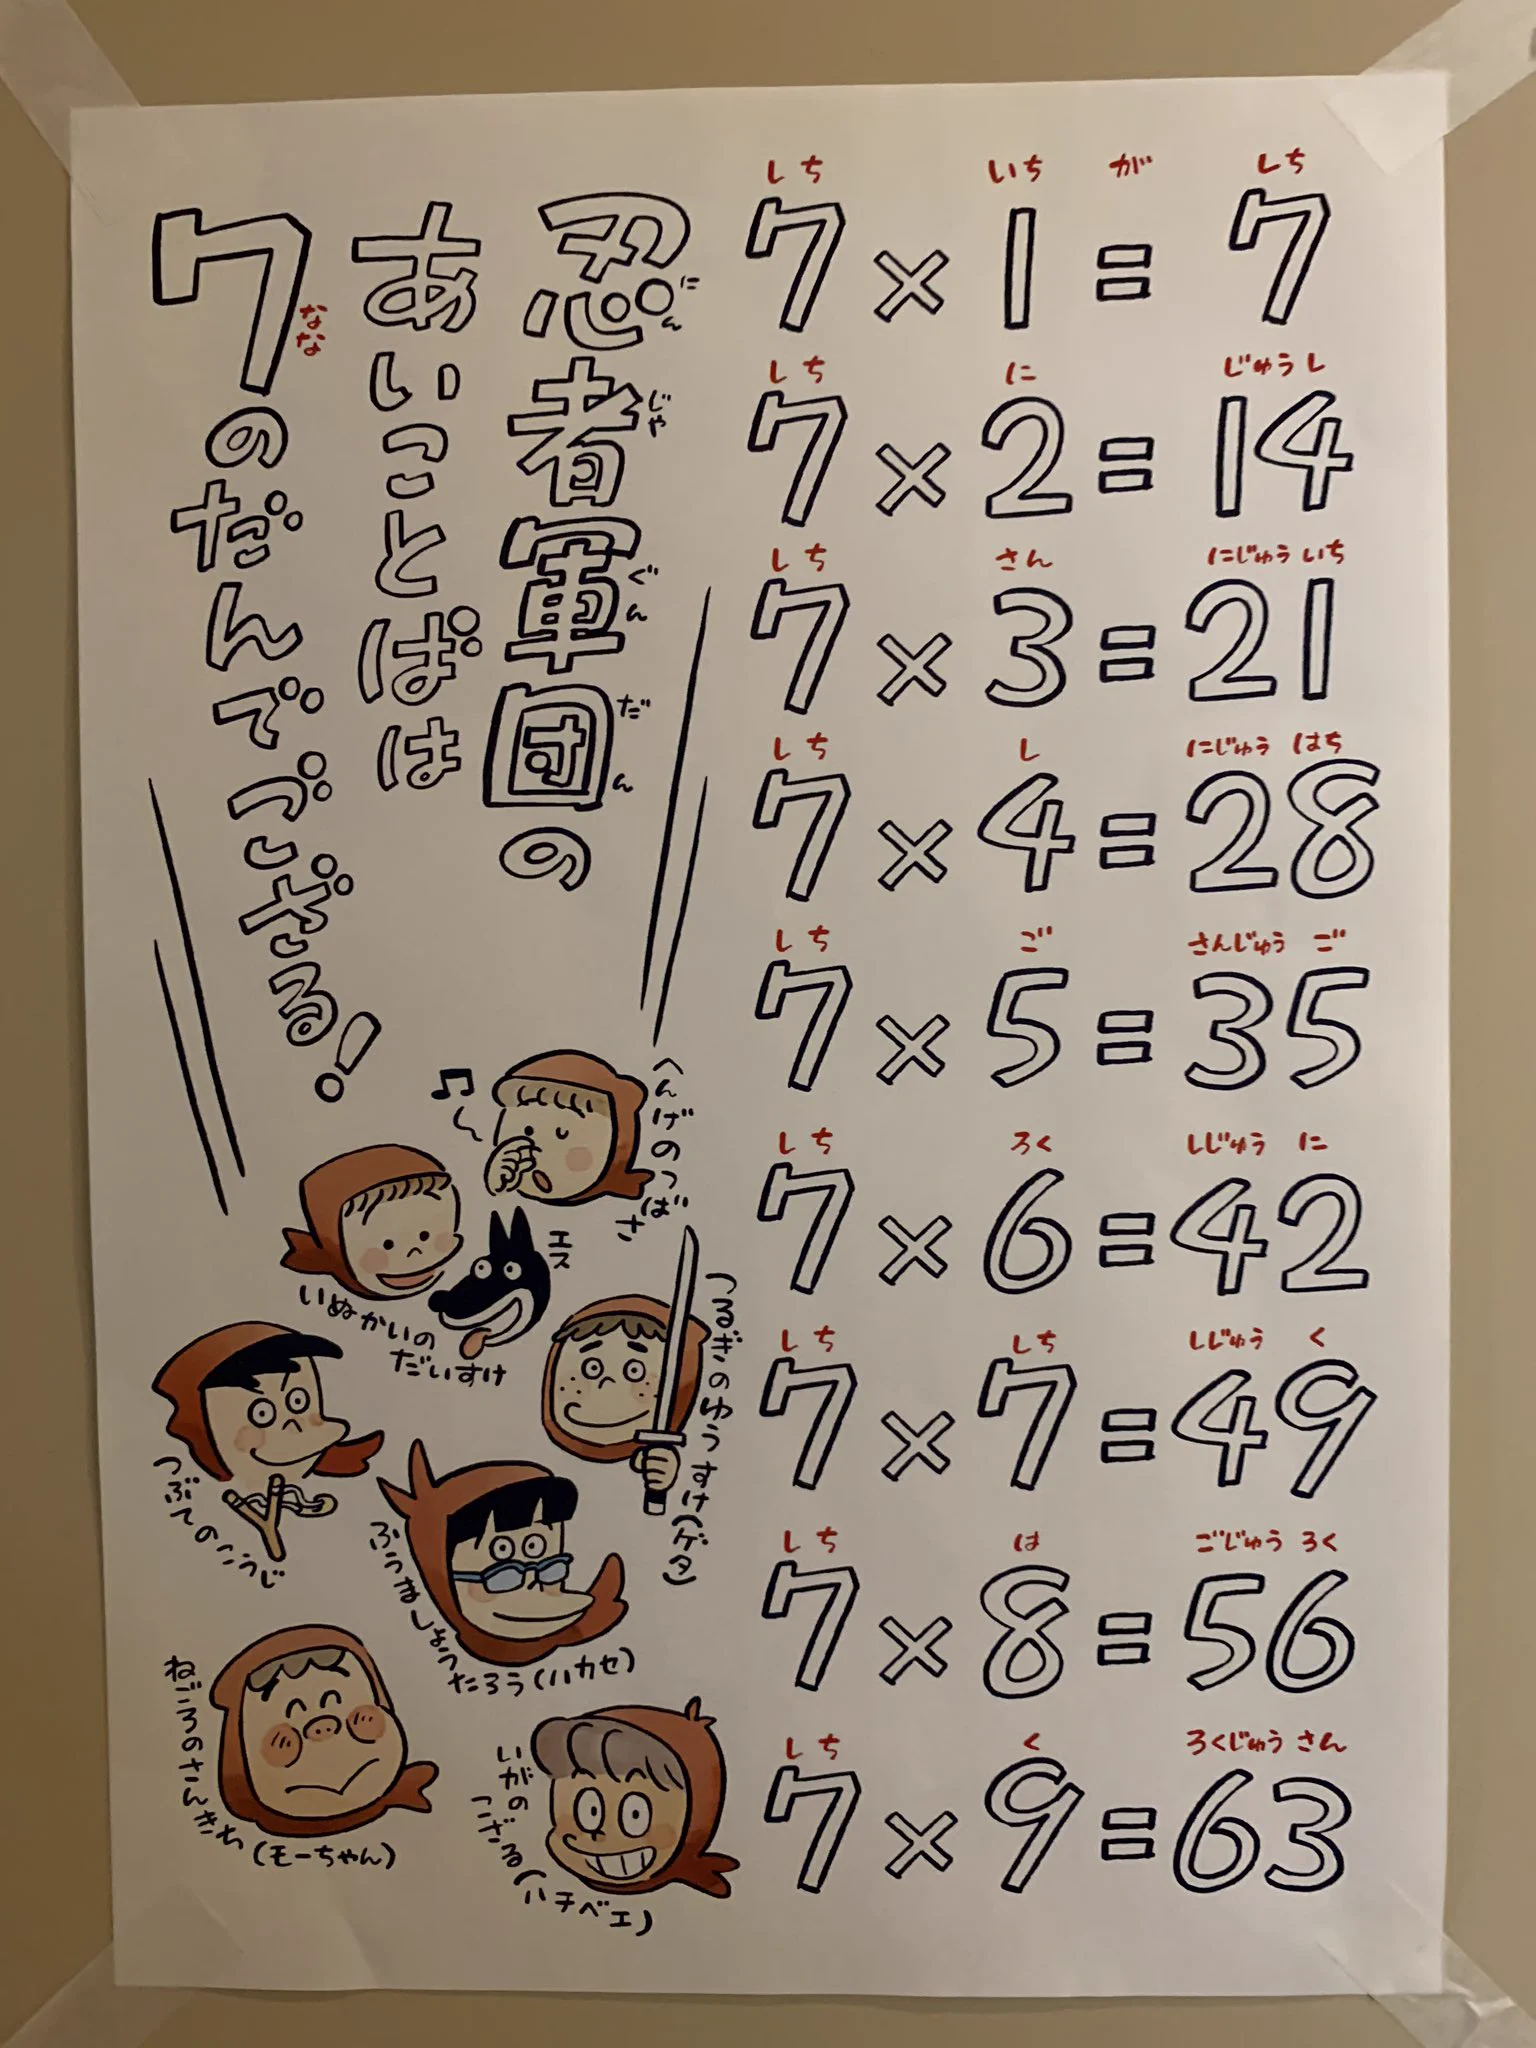 しち いち が しち
7×1=7
しち に じゅうし
7×2=14
しち さん にじゅう いち
7×3=21
しち し にじゅう はち
7×4=28
しち ご さんじゅう ご
7×5=35
しち ろく しじゅう に
7×6=42
しち しち しじゅう く
7×7=49
しち は ごじゅう ろく
7×8=56
しち く ろくじゅう さん
7×9=63
忍者軍団の
にんじゃぐんだん
あいことばは
7のだんでござる!
なな
へんげのつばさ
エス
いぬかいの
だいすけ
つるぎのゆうすけ(ゲタ)
つぶてのこうじ
ふうましょう
たろう(ハカセ)
ねごろのさんきち
(モーちゃん)
いがの
こざる(ハチベエ)